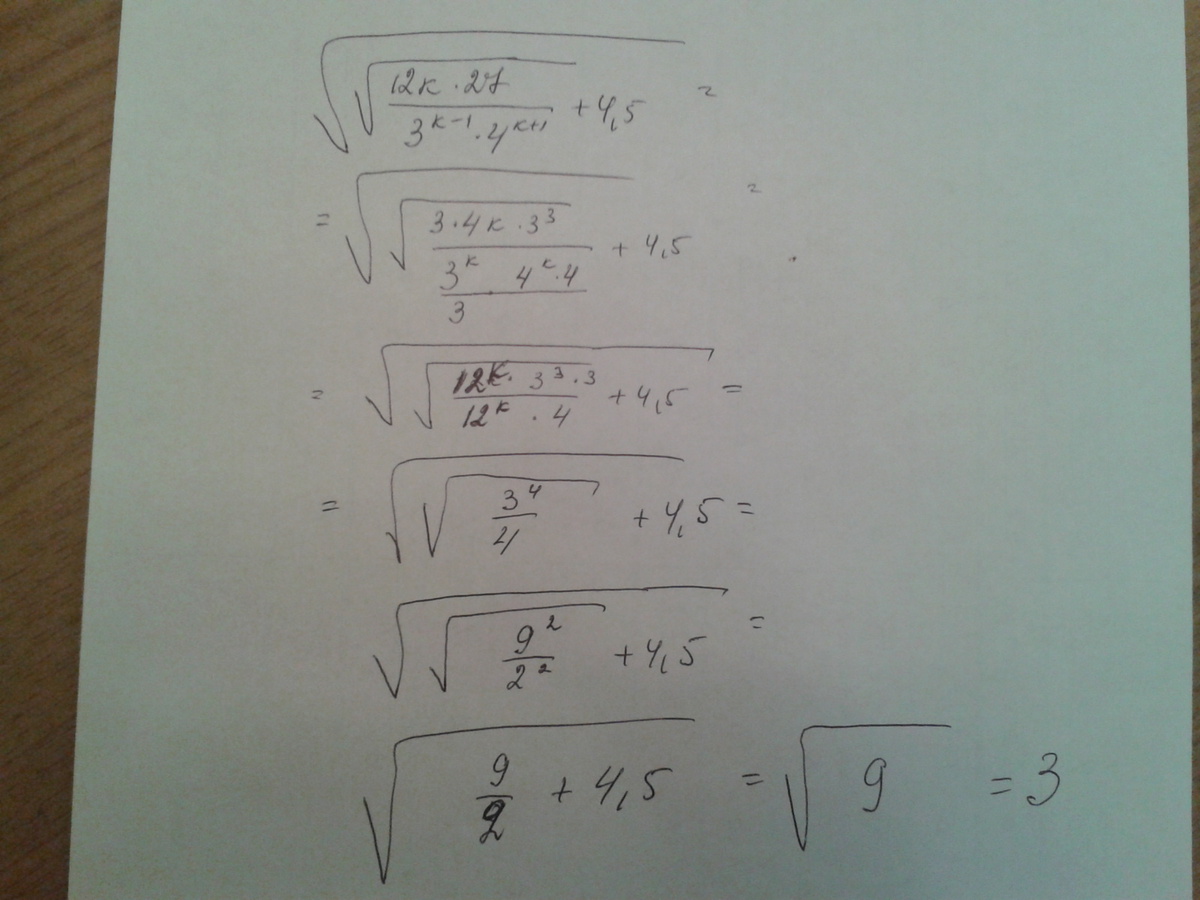 √(√((12к · 27)/(3^(к-1) · 4^(к+1))) + 4,5) =
= √(√((3 · 4к · 3^3)/((3^к)/3 · 4^к · 4)) + 4,5) =
= √(√((12^к · 3^3 · 3)/(12^к · 4)) + 4,5) =
= √(√(3^4/4) + 4,5) =
√(√(9^2/2^2) + 4,5) =
√(9/2 + 4,5) = √9 = 3